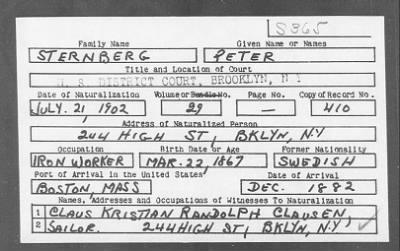 S365
Family Name Given Name or Names
STERNBERG PETER
Title and Location of Court
U. S. DISTRICT COURT, BROOKLYN, N Y
Date of Naturalization Volume or Bundle No. Page No. Copy of Record No.
JULY. 21, 1902 29 — 410
Address of Naturalized Person
244 HIGH ST, BKLYN, N.Y
Occupation Birth Date or Age Former Nationality
IRON WORKER MAR. 22, 1867 SWEDISH
Port of Arrival in the United States Date of Arrival
BOSTON, MASS DEC. 1882
Names, Addresses and Occupations of Witnesses To Naturalization
1 CLAUS KRISTIAN RANDOLPH CLAUSEN,
2 SAILOR. 244 HIGH ST, BKLYN, N.Y.